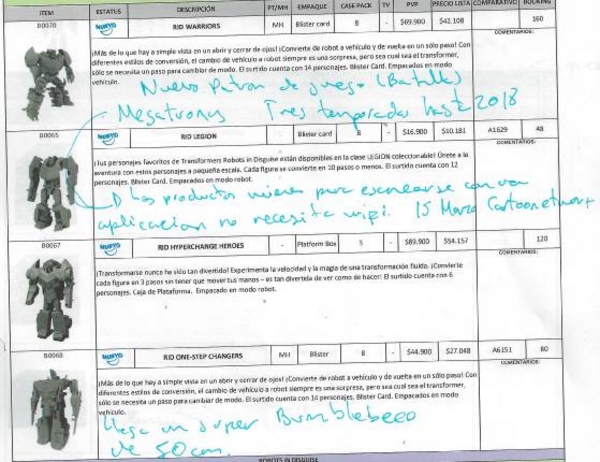 ITEM ESTATUS DESCRIPCIÓN PT/MH EMPAQUE CASE PACK TV PVP PRECIO LISTA COMPARATIVO BOOKING
B0070 NUEVO RID WARRIORS MH Blister card 8 - $69.900 $42.108 160
COMENTARIOS:
¡Más de lo que hay a simple vista en un abrir y cerrar de ojos! ¡Convierte de robot a vehículo y de vuelta en un sólo paso! Con
diferentes estilos de conversión, el cambio de vehículo a robot siempre es una sorpresa, pero sea cual sea el transformer,
sólo se necesita un paso para cambiar de modo. El surtido cuenta con 14 personajes. Blister Card. Empacados en modo
vehículo.
Nuevo Patron de juego (Batalla)
Megatronus Tres temporadas hasta 2018
B0065 NUEVO RID LEGION Blister card 8 - $16.900 $10.181 A1629 48
COMENTARIOS:
¡Tus personajes favoritos de Transformers Robots in Disguise están disponibles en la clase LEGION coleccionable! Únete a la
aventura con estos personajes a pequeña escala. Cada figura se convierte en 10 pasos o menos. El surtido cuenta con 12
personajes. Blister Card. Empacados en modo robot.
Los productos vienen para escanearse con una
aplicacion no necesita wifi. 15 Marzo Cartoonetwork
B0067 NUEVO RID HYPERCHANGE HEROES - Platform Box 3 - $89.900 $54.157 120
COMENTARIOS:
¡Transformarse nunca ha sido tan divertido! Experimenta la velocidad y la magia de una transformación fluida. ¡Convierte
cada figura en 3 pasos sin tener que mover tus manos – es tan divertida de ver como de hacer! El surtido cuenta con 6
personajes. Caja de Plataforma. Empacado en modo robot.
B0068 NUEVO RID ONE-STEP CHANGERS MH Blister 8 - $44.900 $27.048 A6151 80
COMENTARIOS:
¡Más de lo que hay a simple vista en un abrir y cerrar de ojos! ¡Convierte de robot a vehículo y de vuelta en un sólo paso! Con
diferentes estilos de conversión, el cambio de vehículo a robot siempre es una sorpresa, pero sea cual sea el transformer,
sólo se necesita un paso para cambiar de modo. El surtido cuenta con 14 personajes. Blister Card. Empacados en modo
vehículo.
Llega un super Bumblebeee
de 50cm.
ROBOTS IN DISGUISE